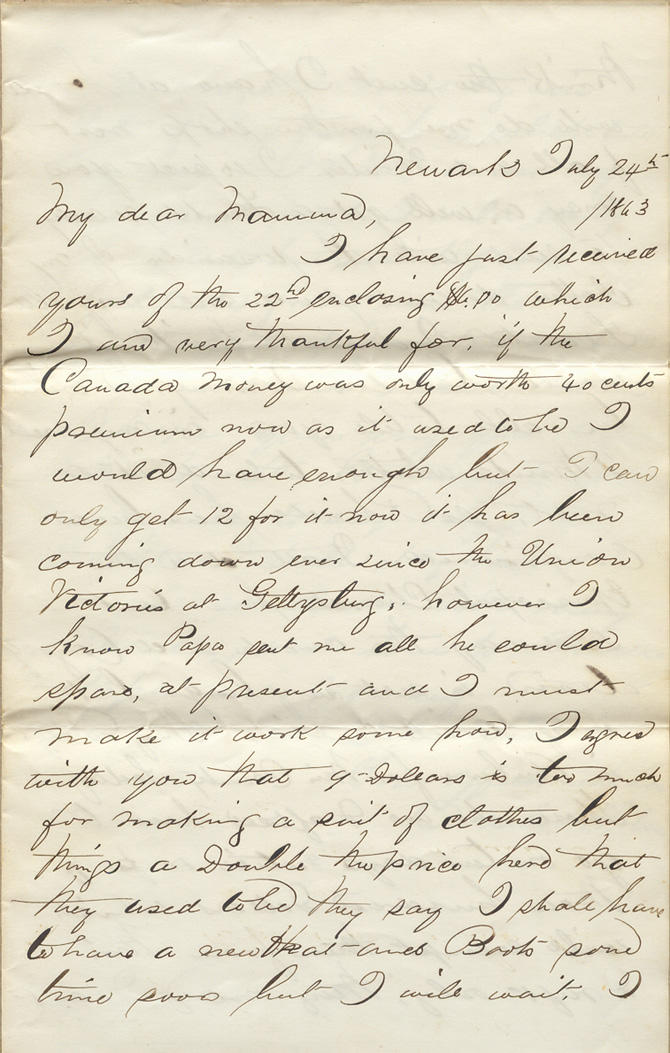 Newark July 24th
/1863
My dear Mamma,
I have just received
yours of the 22nd enclosing which
I am very thankful for, if the
Canada Money was only worth 40 cents
premium now as it used to be I
would have enough but I can
only get 12 for it now it has been
coming down ever since the Union
Victories at Gettysburg, however I
know Papa sent me all he could
spare, at present and I must
make it work some how, I agree
with you that 9 Dollars is too much
for making a suit of clothes but
things a Double the price here that
they used to be they say I shall have
to have a new Hat and Boots some
time soon but I will wait. I